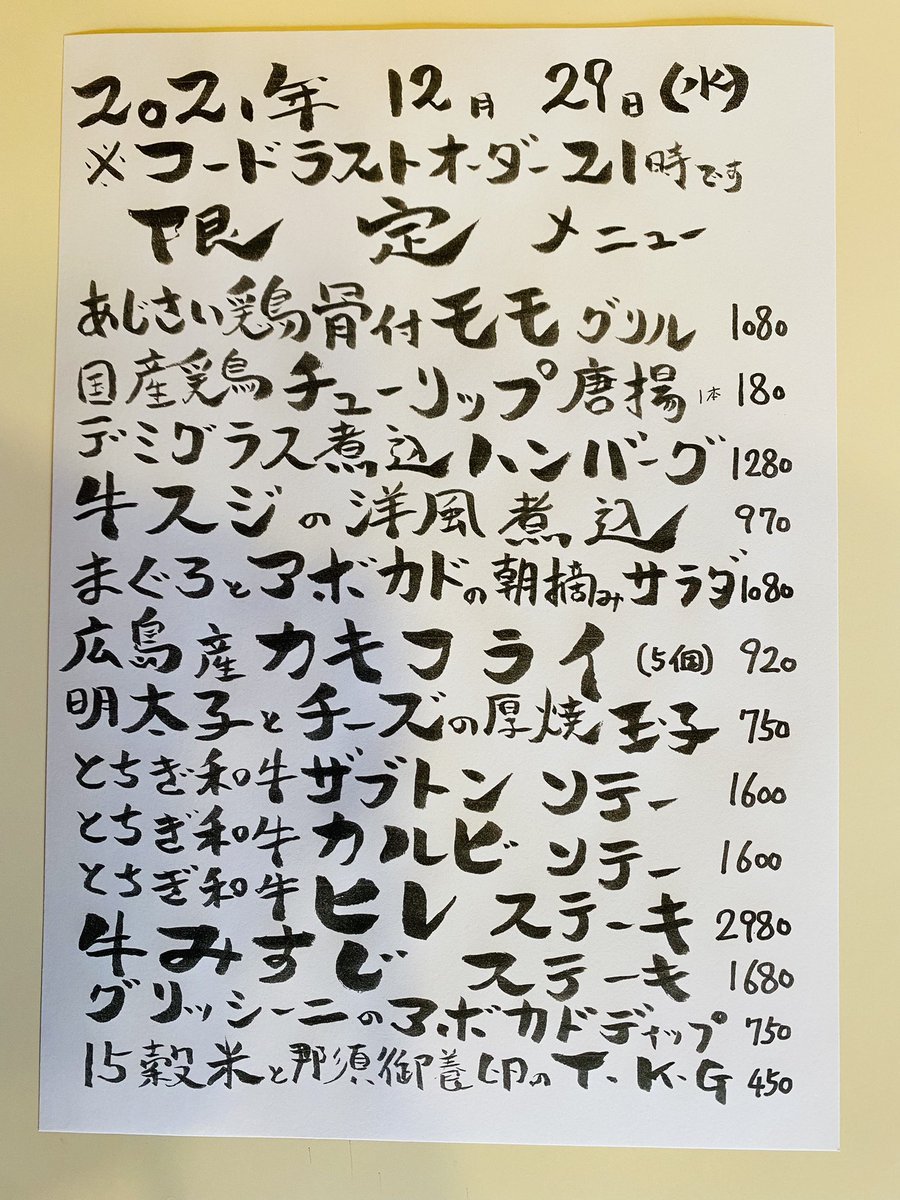 2021年 12月 29日(水)
※コードラストオーダー21時です
限 定 メニュー
あじさい鶏骨付モモグリル 1080
国産鶏チューリップ唐揚 1本 180
デミグラス煮込ハンバーグ 1280
牛スジの洋風煮込 970
まぐろとアボカドの朝摘みサラダ 1080
広島産カキフライ (5個) 920
明太子とチーズの厚焼玉子 750
とちぎ和牛ザブトン ソテー 1600
とちぎ和牛カルビ ソテー 1600
とちぎ和牛ヒレ ステーキ 2980
牛みすじ ステーキ 1680
グリッシーニのアボカドディップ 750
15穀米と那須御養卵のT.K.G 450